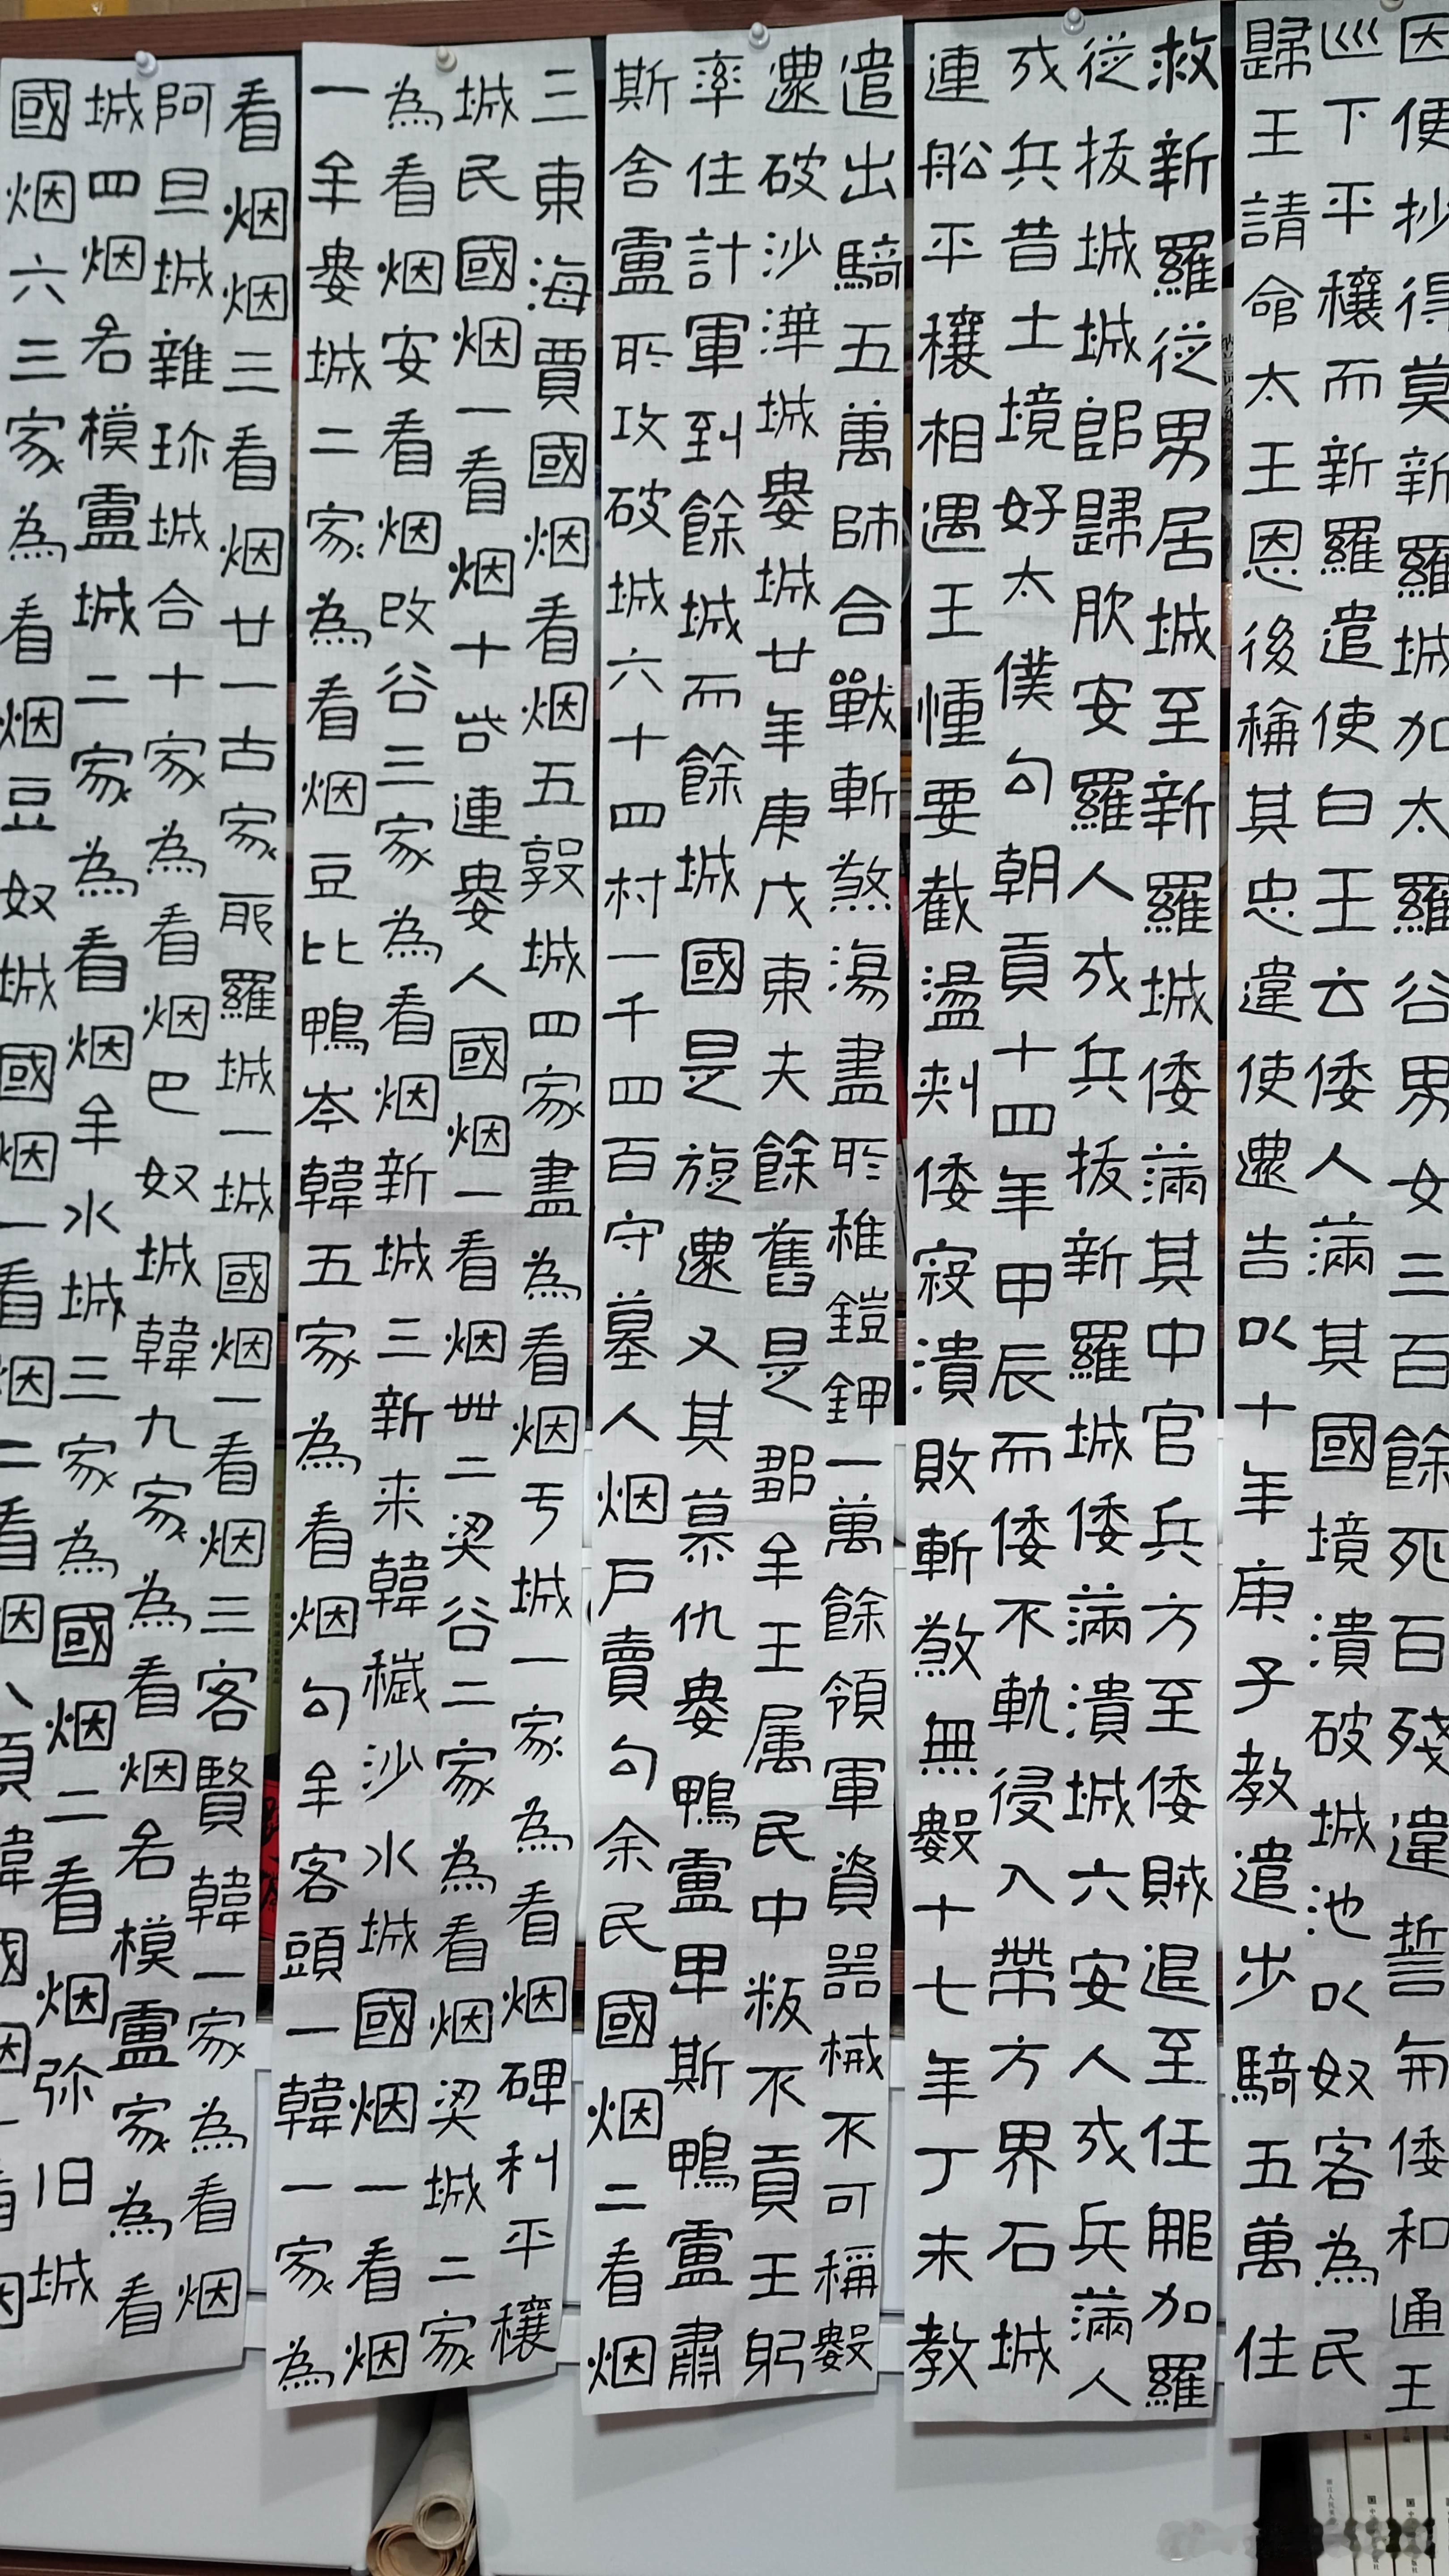 因便抄得莫新羅城加太羅谷男女三百餘死百殘違誓与倭和通王
巡下平穰而新羅遣使白王云倭人滿其國境潰破城池以奴客為民
歸王請命太王恩後稱其忠違使還告以十年庚子教遣步騎五萬住
救新羅從男居城至新羅城倭滿其中官兵方至倭賊退至任那加羅
從拔城城即歸服安羅人戍兵拔新羅城倭滿潰城六安人戍兵滿人
戍兵昔土境好太僕句朝貢十四年甲辰而倭不軌侵入帶方界石城
連船平穰相遇王幢要截盪刺倭寇潰敗斬煞無數十七年丁未教
遣出騎五萬師合戰斬煞湯盡所稚鎧鉀一萬餘領軍資器械不可稱數
還破沙溝城婁城廿年庚戊東夫餘舊是鄒牟王属民中叛不貢王躬
率住計軍到餘城而餘城國是旋還又其慕仇婁鴨盧卑斯鴨盧肅
斯舍盧所攻破城六十四村一千四百守墓人烟戶賣句余民國烟二看烟
三東海賈國烟看烟五敦城四家盡為看烟亐城一家為看烟碑利平穰
城民國烟一看烟十呰連婁人國烟一看烟卌二梁谷二家為看烟梁城二家
為看烟安看烟改谷三家為看烟新城三新来韓穢沙水城國烟一看烟
一牟婁城二家為看烟豆比鴨岑韓五家為看烟句牟客頭一韓一家為
看烟烟三看烟廿一古家耶羅城一城國烟一看烟三客賢韓一家為看烟
阿旦城雜珎城合十家為看烟巴奴城韓九家為看烟各模盧家為看
城四烟各模盧城二家為看烟牟水城三家為國烟二看烟弥旧城
國烟六三家為看烟豆奴城國烟一看烟二看烟八須韓國烟一看烟